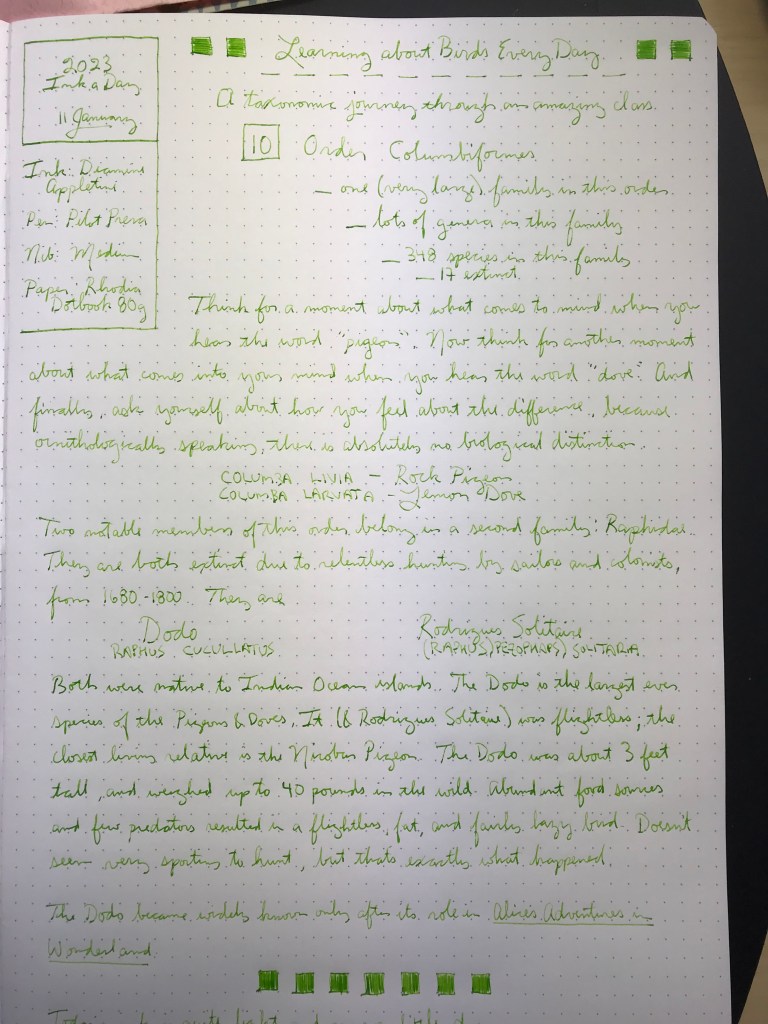 2023
Ink a Day
11 January
Ink: Diamine
Appletini
Pen: Pilot Prera
Nib: Medium
Paper: Rhodia
Dotbook 80g
Learning about Birds Every Day
A taxonomic journey through an amazing class
10 Order Columbiformes
— one (very large) family in this order
— lots of genera in this family
— 348 species in this family
— 17 extinct
Think for a moment about what comes to mind when you
hear the word "pigeon". Now think for another moment
about what comes into your mind when you hear the word "dove". And
finally, ask yourself about how you feel about the difference, because
ornithologically speaking, there is absolutely no biological distinction.
COLUMBA LIVIA – Rock Pigeon
COLUMBA LARVATA – Lemon Dove
Two notable members of this order belong in a second family: Raphidae.
They are both extinct due to relentless hunting by sailors and colonists,
from 1680-1800. They are
Dodo
RAPHUS CUCULLATUS
Rodrigues Solitaire
(RAPHUS) PEZOPHAPS) SOLITARIA
Both were native to Indian Ocean islands. The Dodo is the largest ever
species of the Pigeons & Doves. It (& Rodrigues Solitaire) was flightless; the
closest living relative is the Nicobar Pigeon. The Dodo was about 3 feet
tall, and weighed up to 40 pounds in the wild. Abundant food sources
and few predators resulted in a flightless, fat, and fairly lazy bird. Doesn't
seem very sporting to hunt, but that's exactly what happened.
The Dodo became widely known only after its role in Alice's Adventures in
Wonderland.